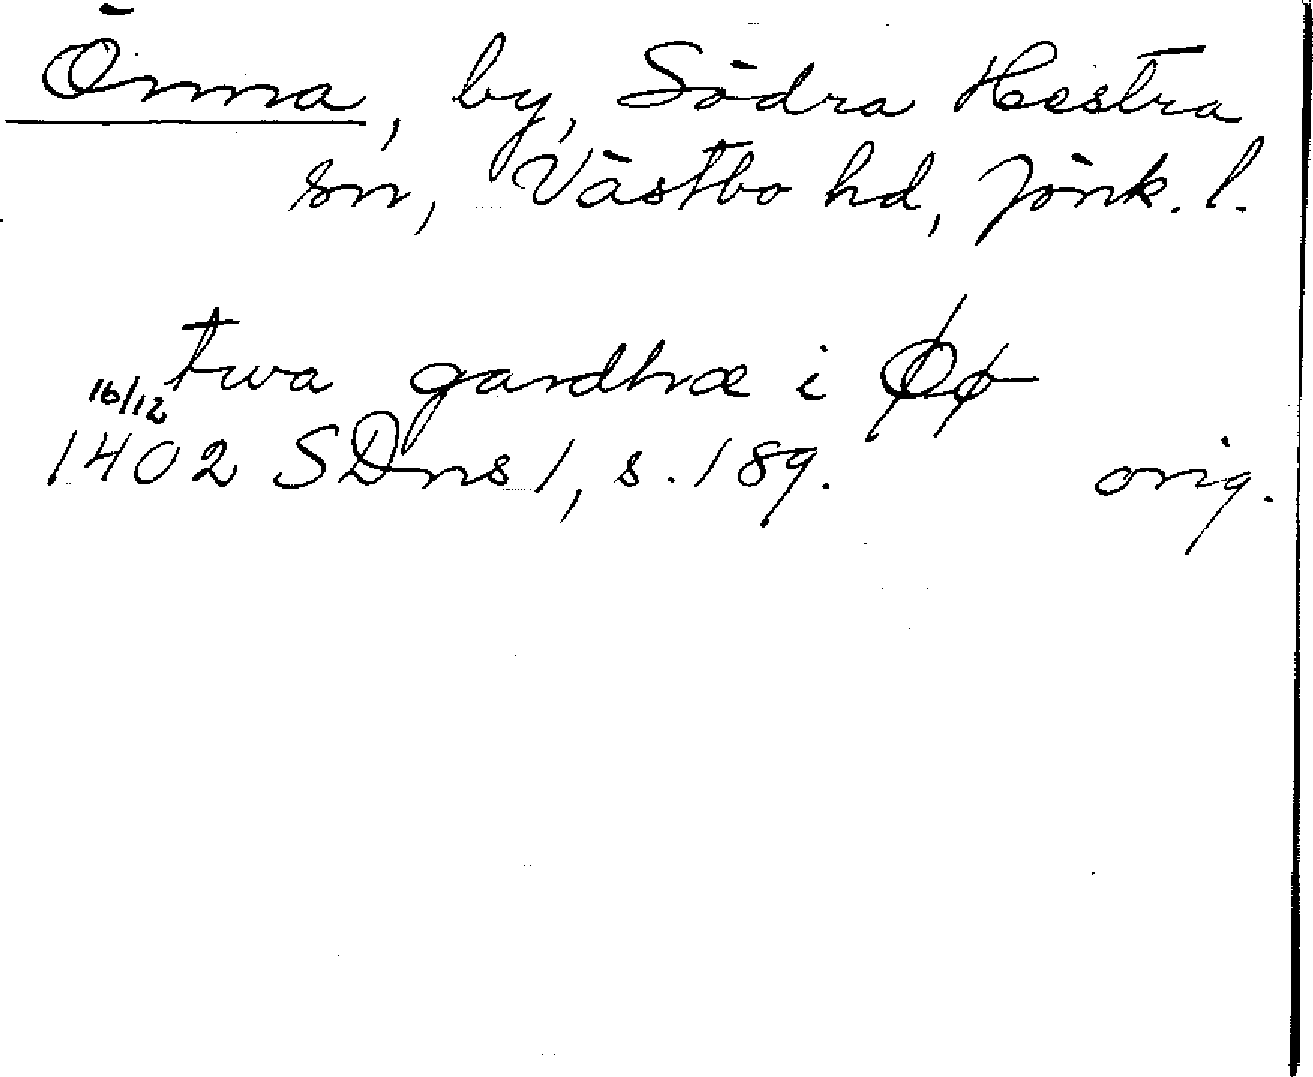 Önna, by, Södra Hestra
sn, Västbo hd, Jönk. l.
twa gardhæ i Øø
16/12
1402 SDns 1, s. 189. orig.